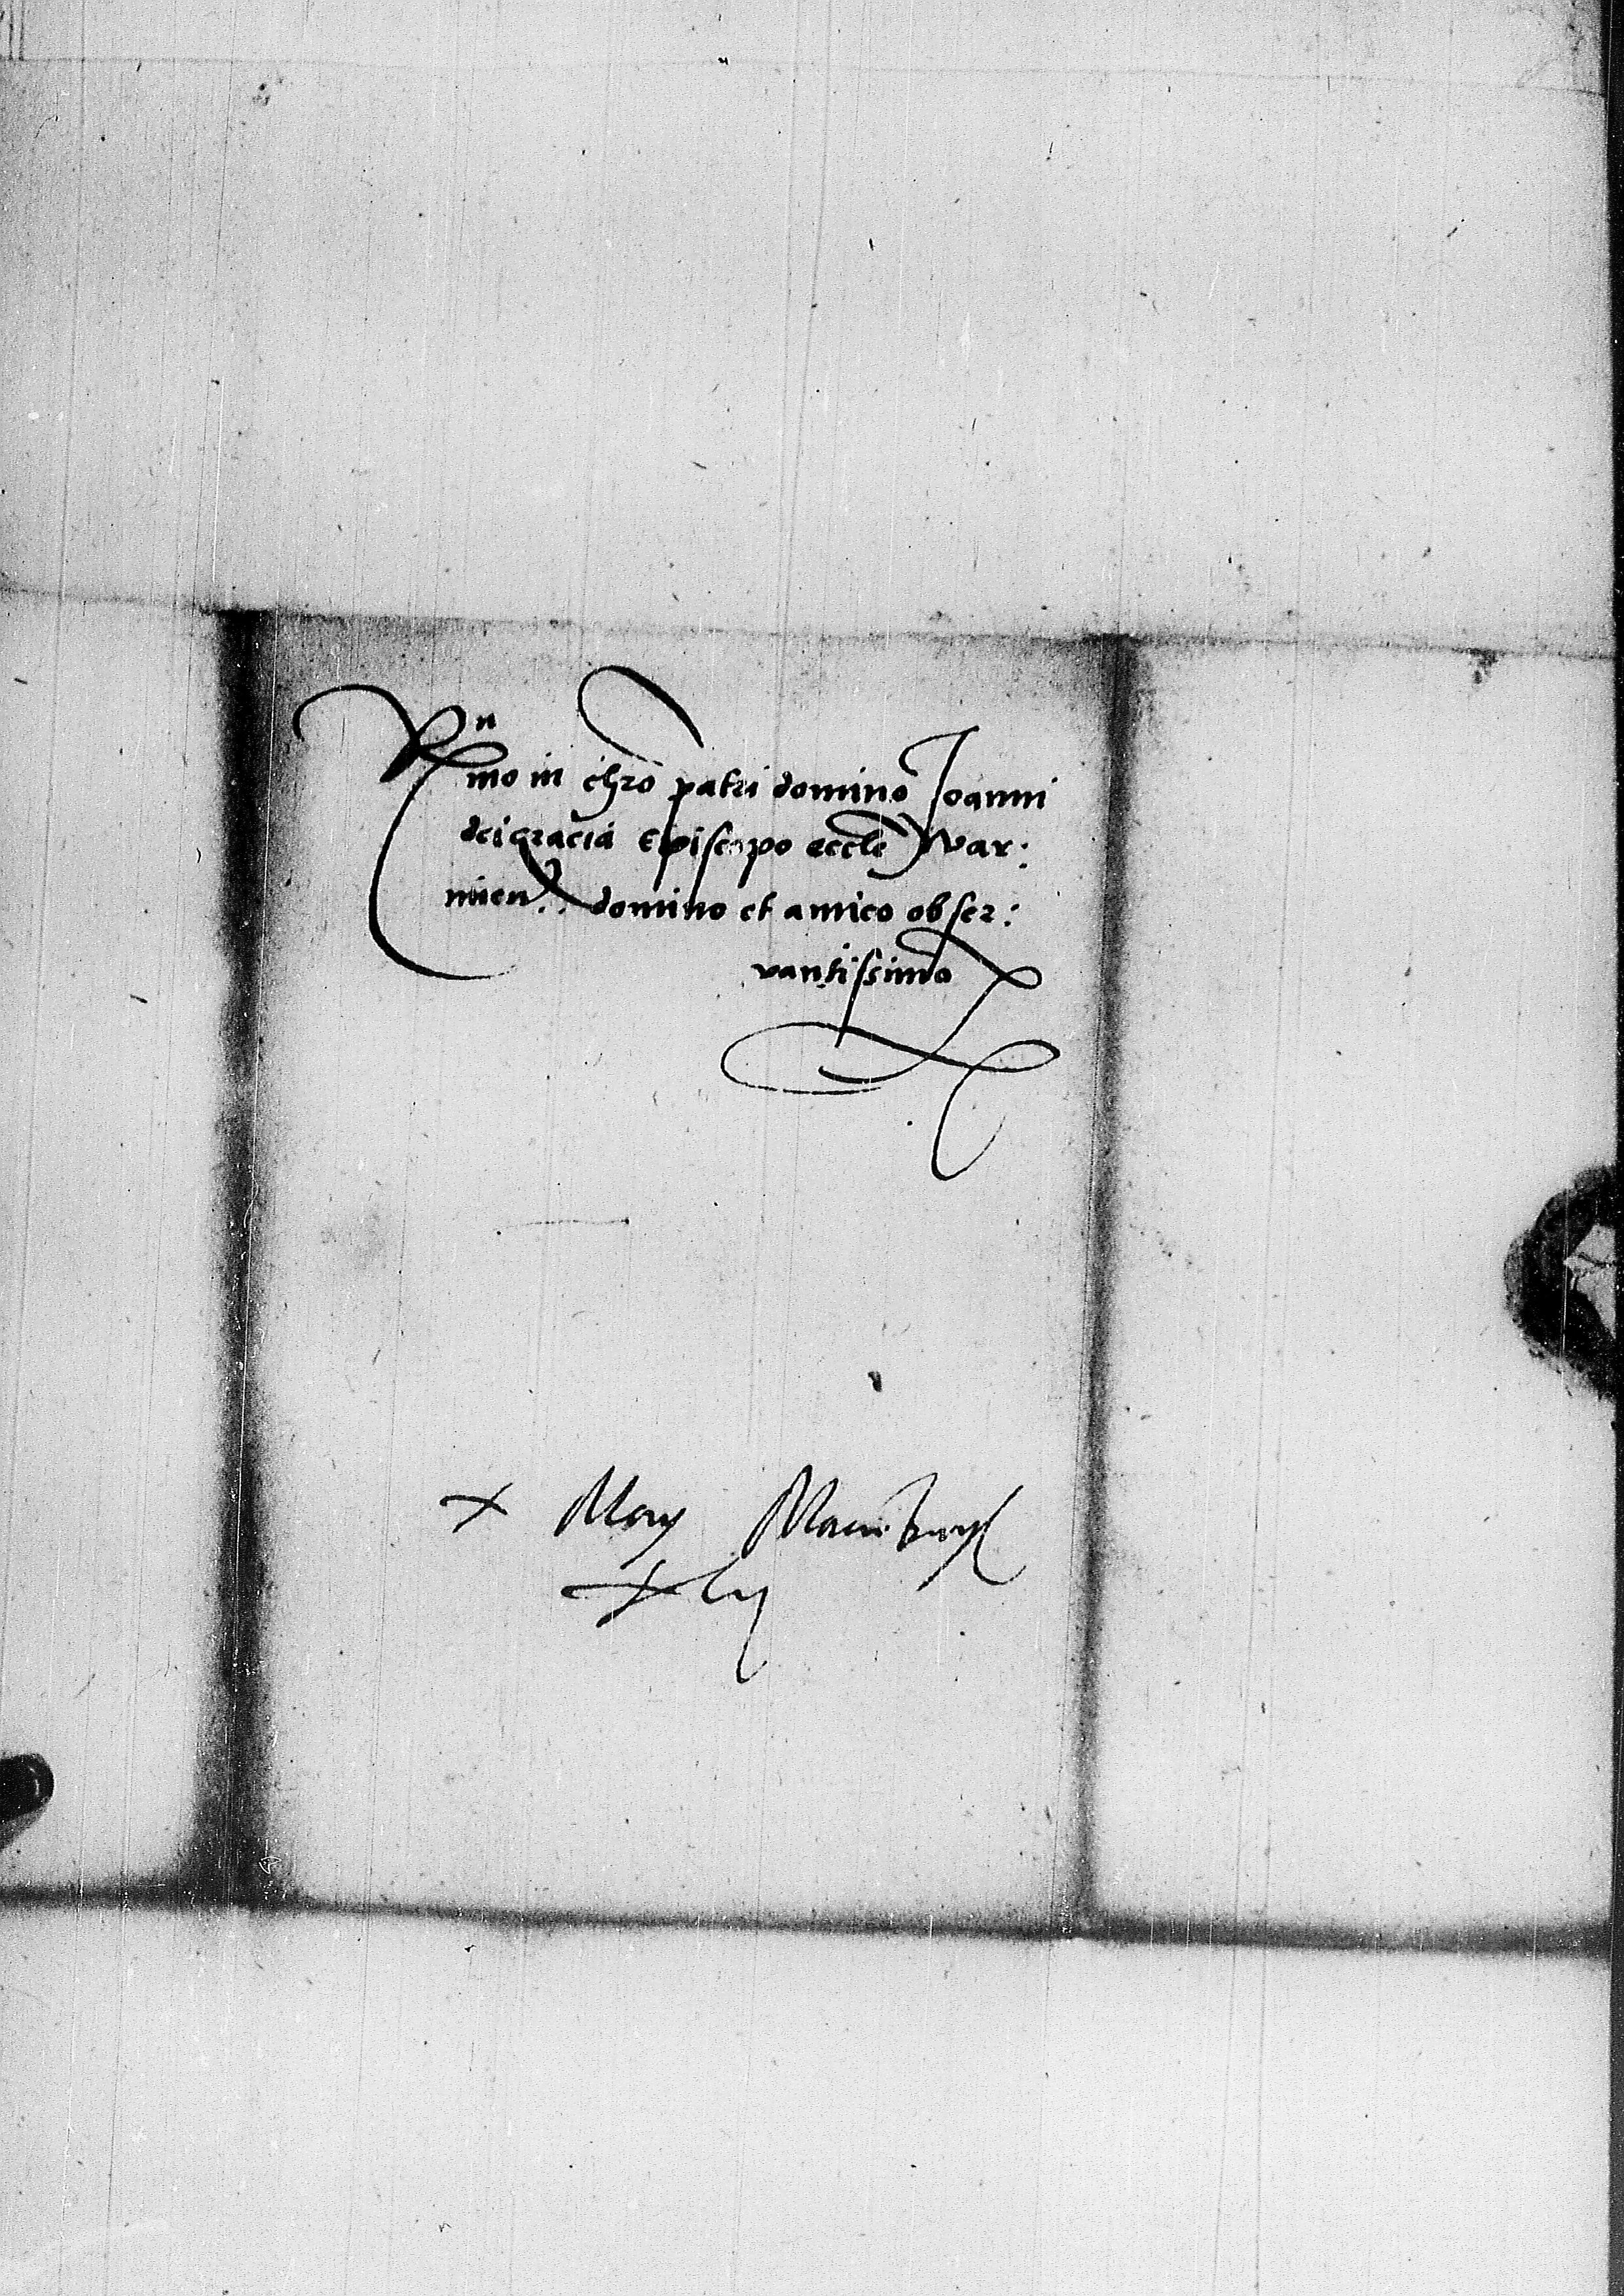 Rn
mo in chro patri domino Joanni
dei gracia Episcopo eccle War:
mien. domino et amico obser:
vantissimo